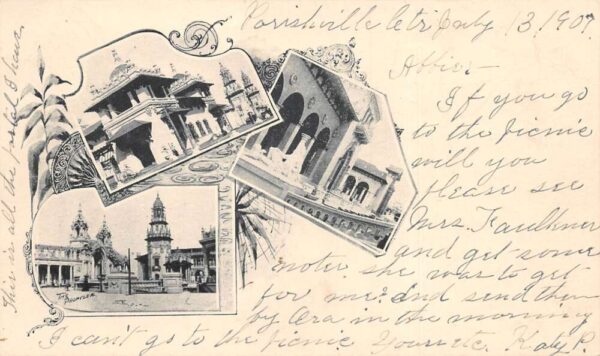 Parishville Ctr July 13, 1907
Abbie:-
If you go
to the Picnic
will you
please see
Mrs. Faulkner
and get some
notes she was to get
for me? And send them
by Ora in the morning
I can't go to the picnic Yours etc. Katy P.
This is all the postal I have